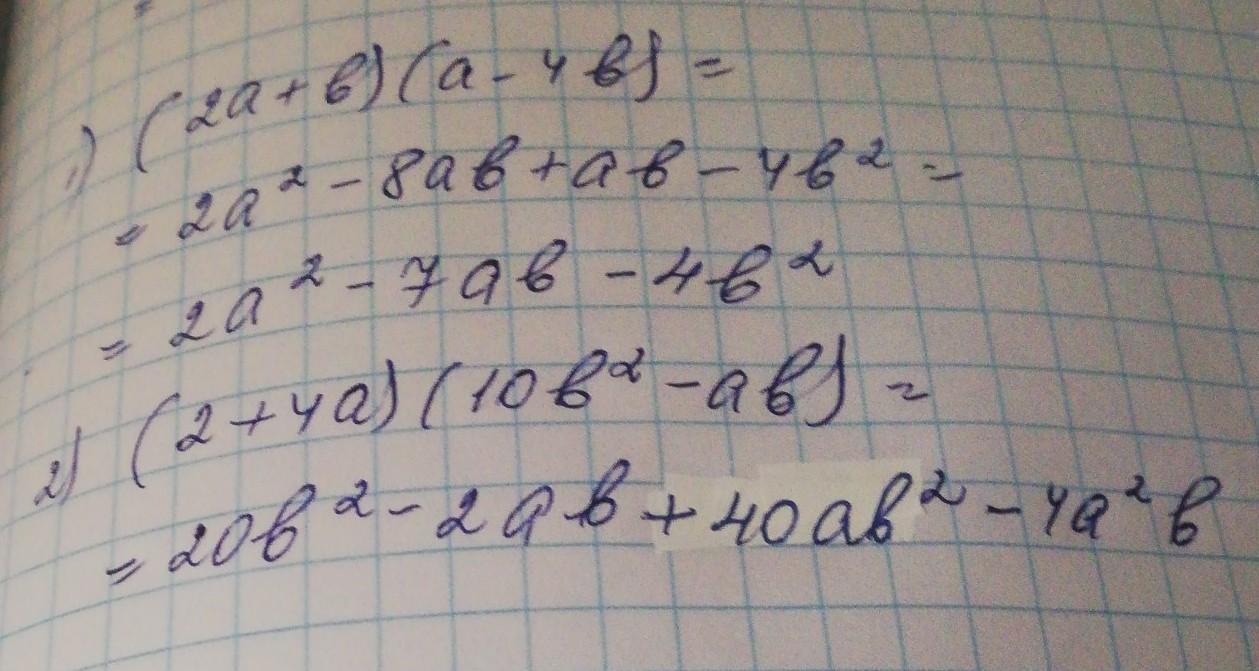 1) (2a+b)(a-4b)=
= 2a² - 8ab + ab - 4b² =
= 2a² - 7ab - 4b²
2) (2+4a)(10b² - ab) =
= 20b² - 2ab + 40ab² - 4a²b